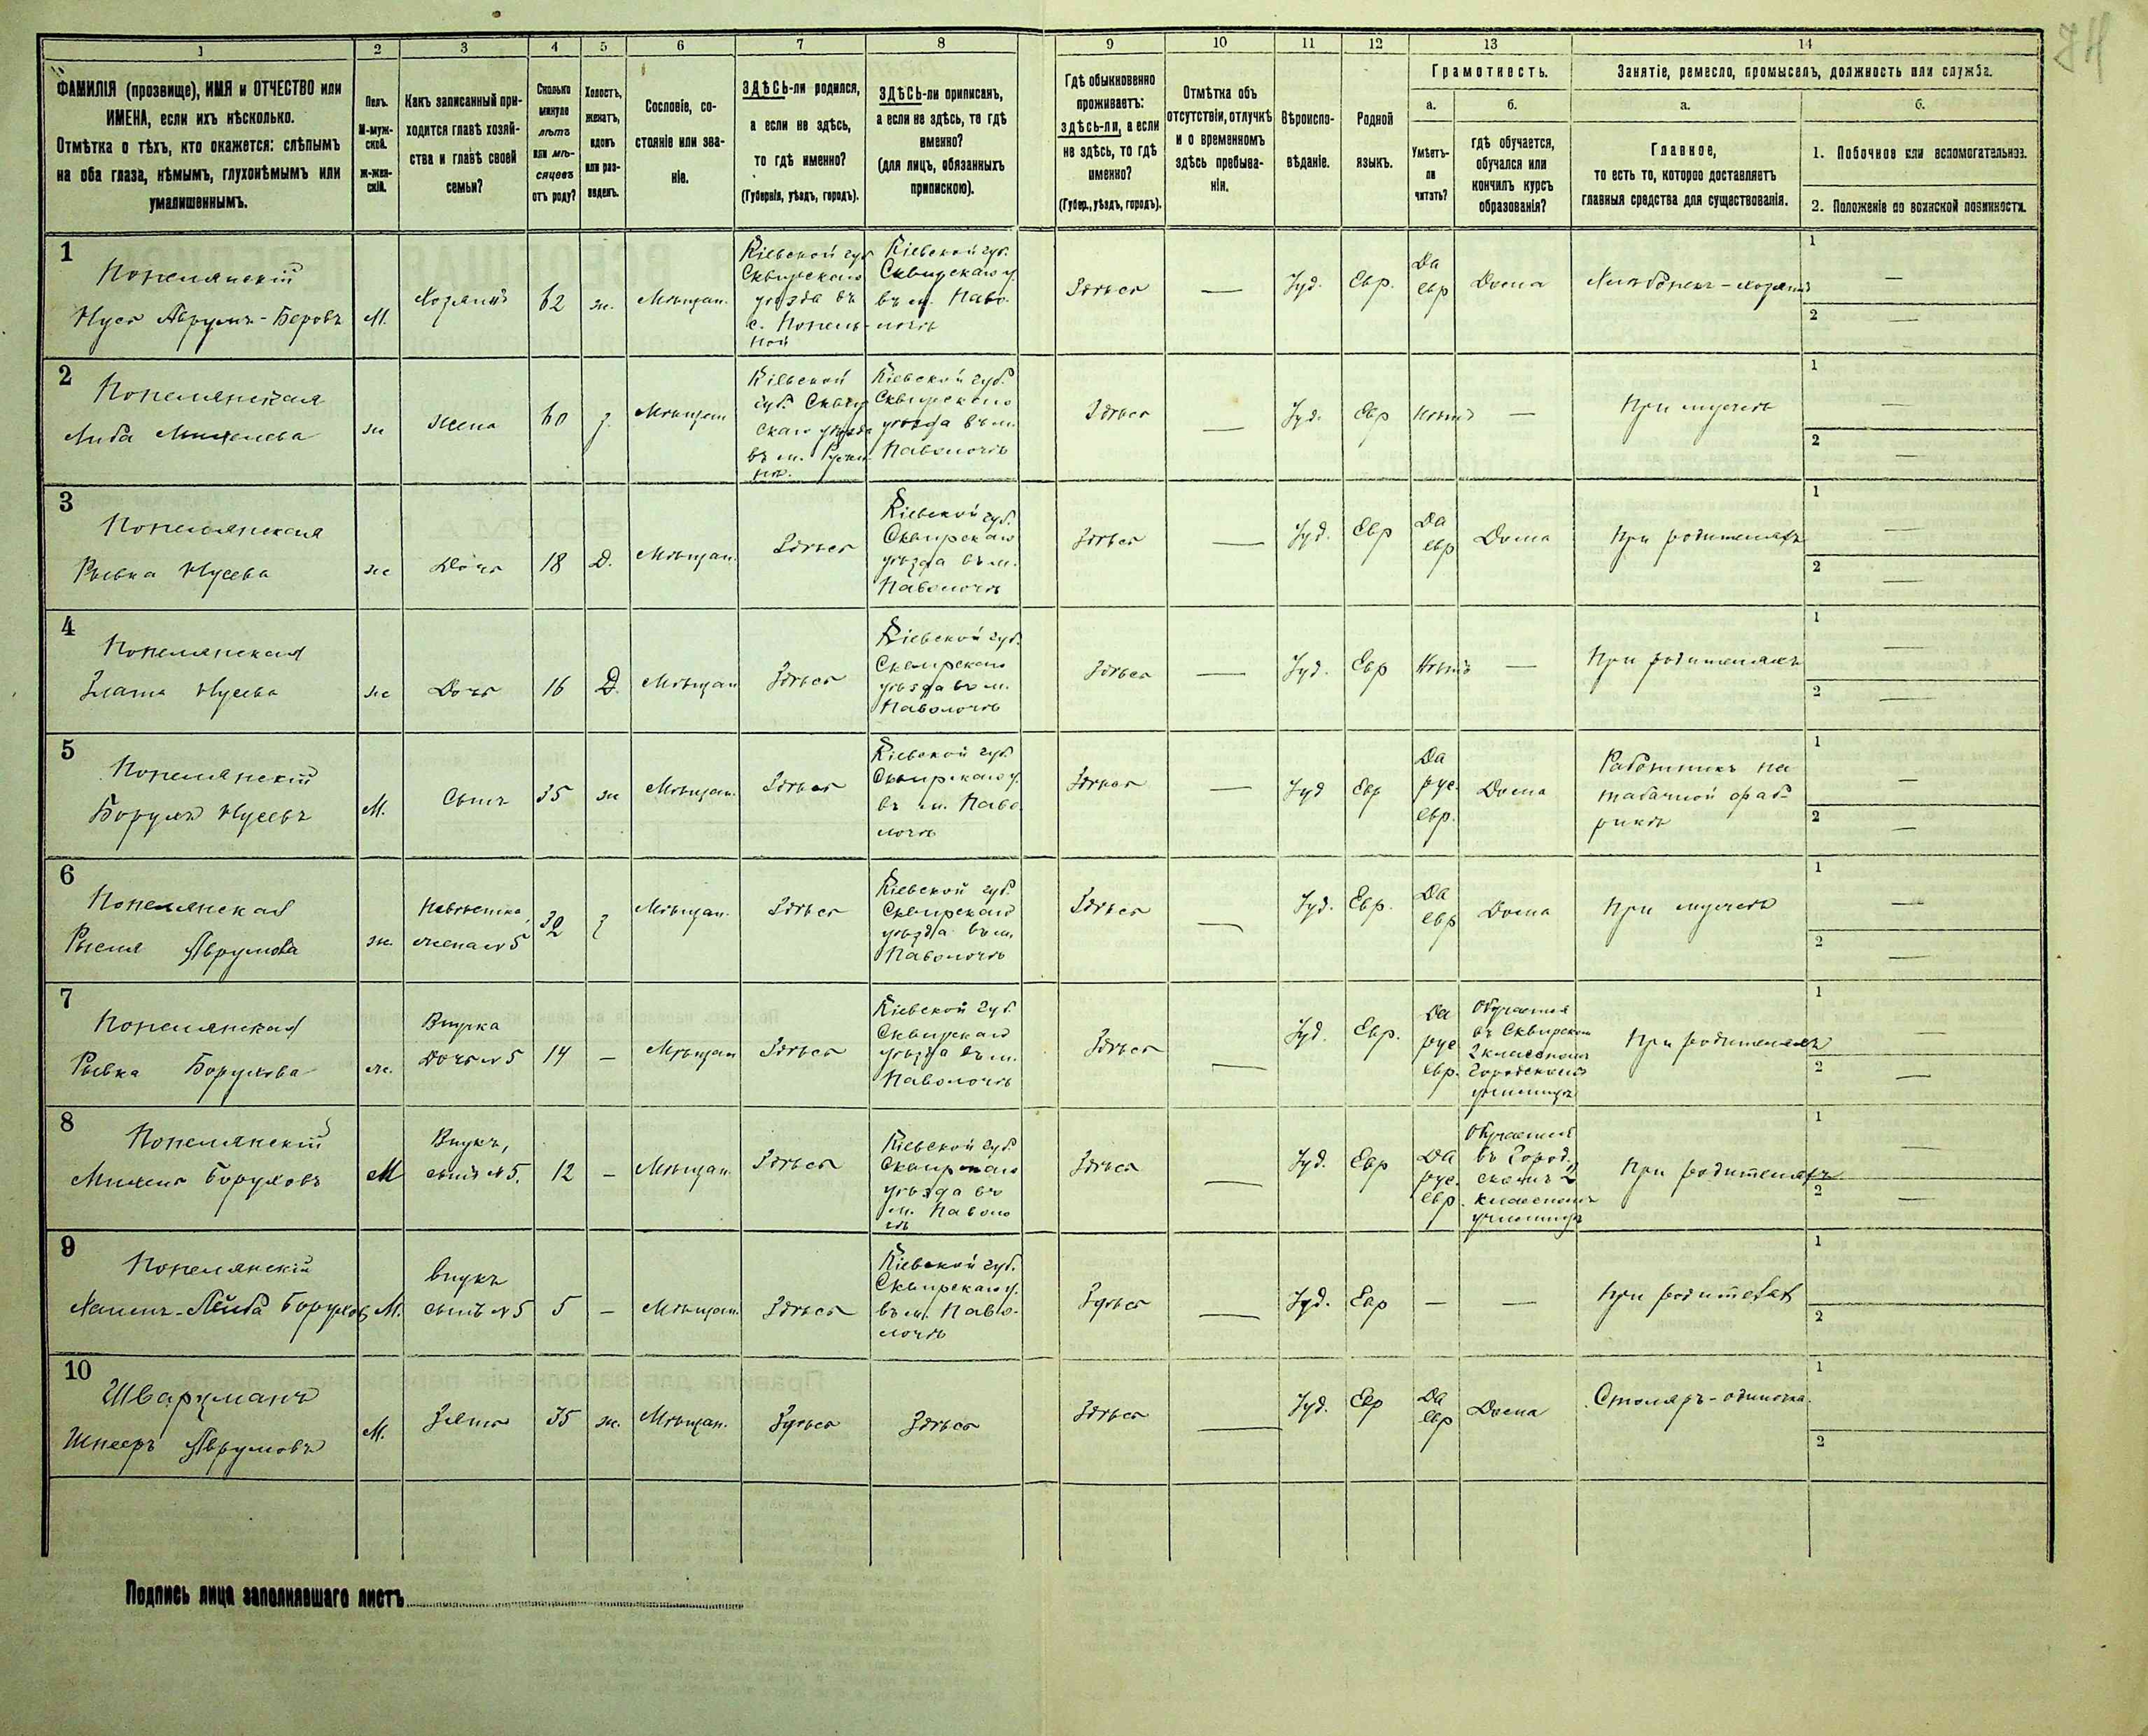 74
1
2
3
4
5
6
7
8
9
10
11
12
13
14
ФАМИЛІЯ (прозвище), ИМЯ и ОТЧЕСТВО или
ИМЕНА, если ихъ нѣсколько.
Отмѣтка о тѣхъ, кто окажется: слѣпымъ
на оба глаза, нѣмымъ, глухонѣмымъ или
умалишеннымъ.
Полъ.
М-муж-
ской.
Ж-жен-
скій.
Какъ записанный при-
ходится главѣ хозяй-
ства и главѣ своей
семьи?
Сколько
минуло
лѣтъ
или мѣ-
сяцевъ
отъ роду?
Холостъ,
женатъ,
вдовъ
или раз-
веденъ.
Сословіе, со-
стояніе или зва-
ніе.
ЗДѢСЬ-ли родился,
а если не здѣсь,
то гдѣ именно?
(Губернія, уѣздъ, городъ).
ЗДѢСЬ-ли приписанъ,
а если не здѣсь, то гдѣ
именно?
(для лицъ, обязанныхъ
припискою).
Гдѣ обыкновенно
проживаетъ:
здѣсь-ли, а если
не здѣсь, то гдѣ
именно?
(Губер., уѣздъ, городъ).
Отмѣтка объ
отсутствіи, отлучкѣ
и о временномъ
здѣсь пребыва-
ніи.
Вѣроиспо-
вѣданіе.
Родной
языкъ.
Грамотность.
а.
Умѣетъ-
ли
читать?
б.
гдѣ обучается,
обучался или
кончилъ курсъ
образованія?
Занятіе, ремесло, промыселъ, должность или служба.
а.
Главное,
то есть то, которое доставляетъ
главныя средства для существованія.
б.
1. Побочное или вспомогательное.
2. Положеніе по воинской повинности.
1
Попелянскій
Нусь Аврумъ-Беровъ
М.
Хозяинъ
62
ж.
Мѣщан.
Кіевской губ
Сквирскаго
уѣзда въ
с. Попель-
ной
Кіевской губ.
Сквирскаго у.
въ м. Паво-
лочь
Здѣсь
—
Іуд.
Евр.
Да
евр
Дома
1 —
2 —
2
Попелянская
Либа
ж
жена
60
з.
Мѣщан
Кіевской
губ. Сквир
скаго уѣзда
въ м. Ружи
нѣ.
Кіевской губ.
Сквирскаго
уѣзда въ м.
Паволочь
Здѣсь
—
Іуд.
Евр
Нѣтъ
—
При мужѣ
1 —
2 —
3
Попелянская
Рывка Нусева
ж
Дочь
18
Д.
Мѣщан.
Здѣсь
Кіевской губ.
Сквирскаго
уѣзда въ м.
Паволочь
Здѣсь
—
Іуд.
Евр
Да
евр
Дома
При родителяхъ
1 —
2 —
4
Попелянская
Злата Нусева
ж
Дочь
16
Д.
Мѣщан
Здѣсь
Кіевской губ.
Сквирскаго
уѣзда въ м.
Паволочь
Здѣсь
—
Іуд.
Евр
Нѣтъ
—
При родителяхъ
1 —
2 —
5
Попелянскій
Борухъ Нусевъ
М.
Сынъ
35
ж
Мѣщан.
Здѣсь
Кіевской губ.
Сквирскаго у.
въ м. Паво
лочь
Здѣсь
—
Іуд
Евр
Да
рус.
евр.
Дома
Работникъ на
табачной фаб-
рикѣ
1 —
2 —
6
Попелянская
Рысля Аврумова
ж.
Невѣстка,
жена №5
32
з
Мѣщан.
Здѣсь
Кіевской губ.
Сквирскаго
уѣзда въ м.
Паволочь
Здѣсь
—
Іуд.
Евр.
Да
евр
Дома
При мужѣ
1 —
2 —
7
Попелянская
Рывка Борухова
ж.
Внучка
Дочь №5
14
—
Мѣщан
Здѣсь
Кіевской губ.
Сквирскаго
уѣзда въ м.
Паволочь
Здѣсь
—
Іуд.
Евр.
Да
рус
евр.
Обучается
въ Сквирском
2 классномъ
Городскомъ
училищѣ
При родителяхъ
1 —
2 —
8
Попелянскій
Михель Боруховъ
М
Внукъ,
сынъ №5.
12
—
Мѣщан.
Здѣсь
Кіевской губ.
Сквирскаго
уѣзда въ
м. Паволо
чь
Здѣсь
—
Іуд.
Евр
Да
рус.
евр.
Обучается
въ Город.
скомъ 2
классномъ
училищѣ
При родителяхъ
1 —
2 —
9
Попелянскій
Хаимъ-Лейба Борухов
М.
Внукъ
сынъ №5
5
—
Мѣщан.
Здѣсь
Кіевской губ.
Сквирскаго у.
въ м. Паво-
лочь
Здѣсь
—
Іуд.
Евр
—
—
При родителяхъ
1 —
2 —
10
Шварцманъ
Шнееръ Аврумовъ
М.
Зять
35
ж.
Мѣщан.
Здѣсь
Здѣсь
Здѣсь
—
Іуд.
Евр
Да
евр
Дома
Столяръ-одиночка.
1
2
Подпись лица заполнявшаго листъ